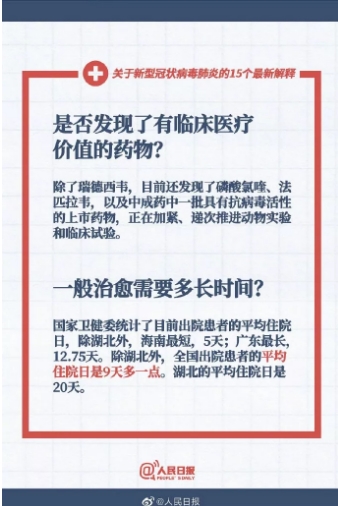 关于新型冠状病毒肺炎的15个最新解释
是否发现了有临床医疗
价值的药物？
除了瑞德西韦，目前还发现了磷酸氯喹、法
匹拉韦，以及中成药中一批具有抗病毒活性
的上市药物，正在加紧、递次推进动物实验
和临床试验。
一般治愈需要多长时间？
国家卫健委统计了目前出院患者的平均住院
日，除湖北外，海南最短，5天；广东最长，
12.75天。除湖北外，全国出院患者的平均
住院日是9天多一点。湖北的平均住院日是
20天。
@人民日报
PEOPLE'S DAILY
@人民日报